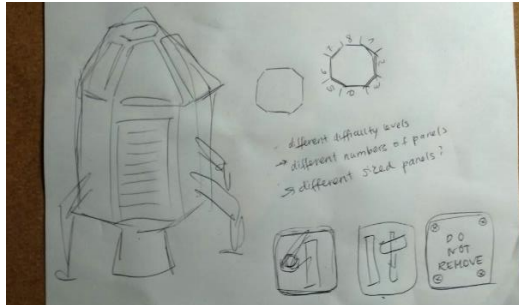 different difficulty levels
→ different numbers of panels
different sized panels?
DO
NOT
REMOVE